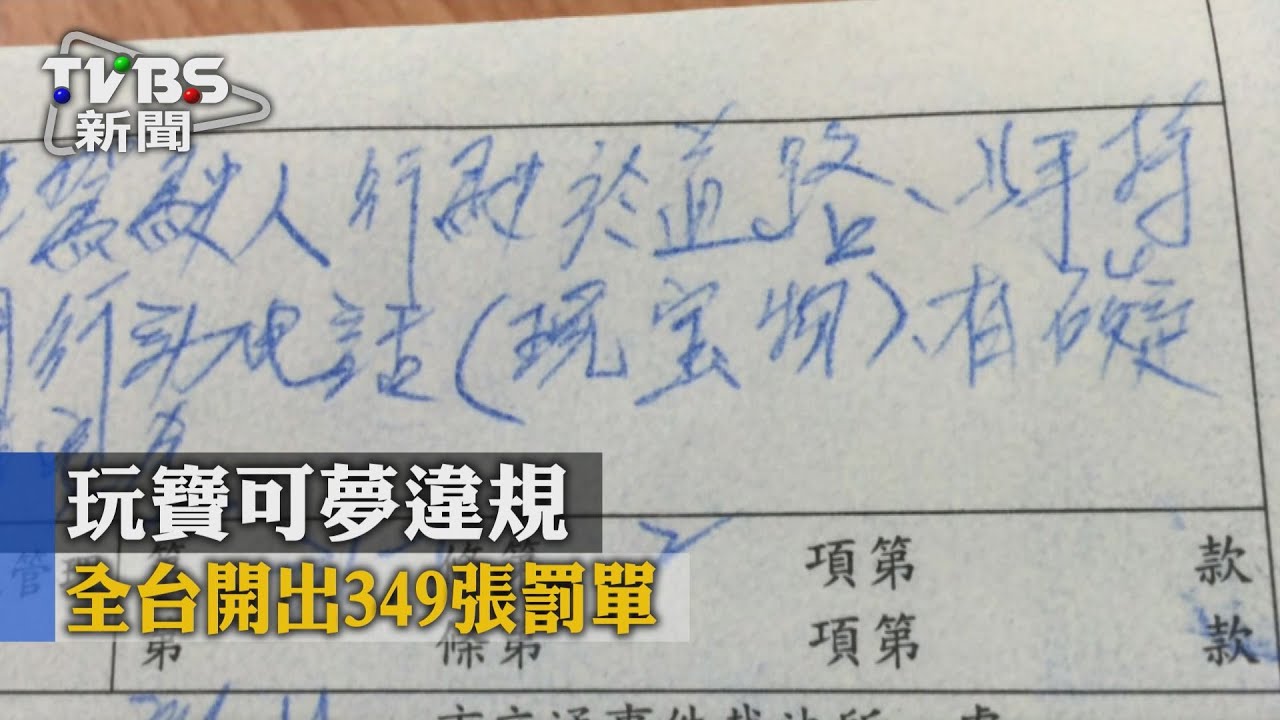 TVBS
新聞
駕駛人行駛於道路、以手持
行動電話(玩宝物)、有礙
玩寶可夢違規
第 條第 2 項第 款
全台開出349張罰單
第 條第 項第 款